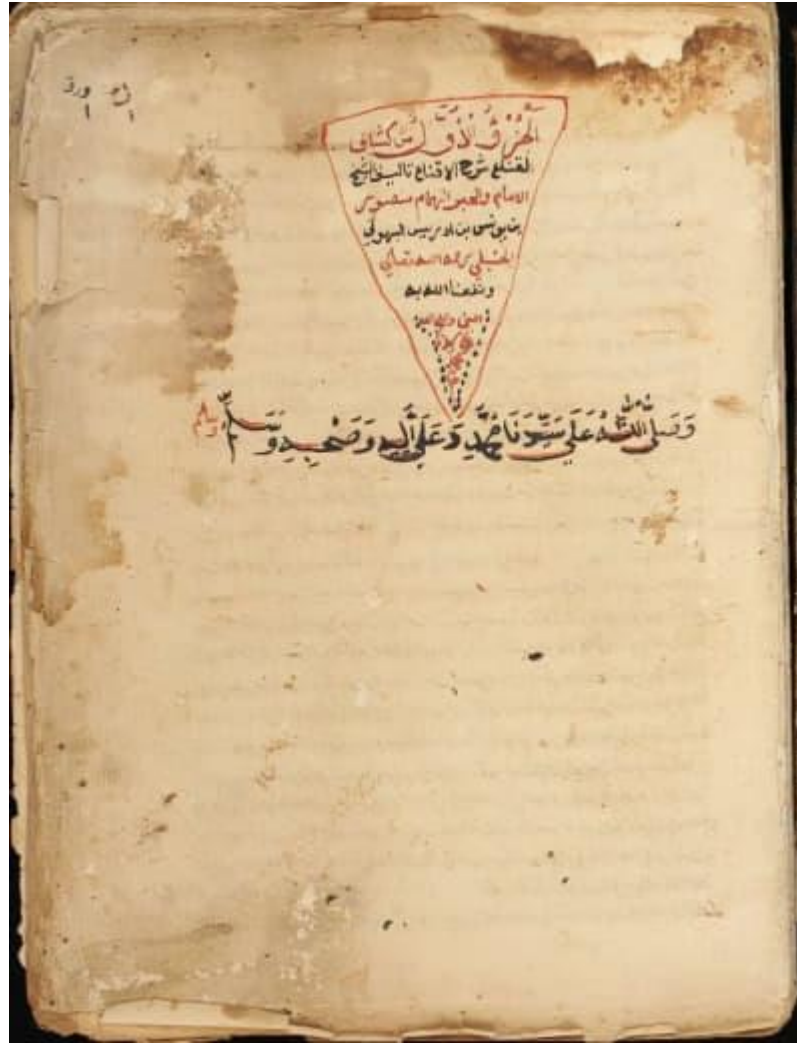 ورق
١ ١
الجزؤ الأوّل من كشاف
القناع شرح الاقناع تاليف الشيخ
الامام والحبر الهمام منصور
بن يونس بن ادريس البهوتي
الحنبلي رحمه الله تعالي
ونفعنا الله به
وَصَلى اللّٰهُ عَلَى سَيِّدِنَا مُحَمَّدٍ وَعَلَى آلِهِ وَصَحْبِهِ وَسَلَّم